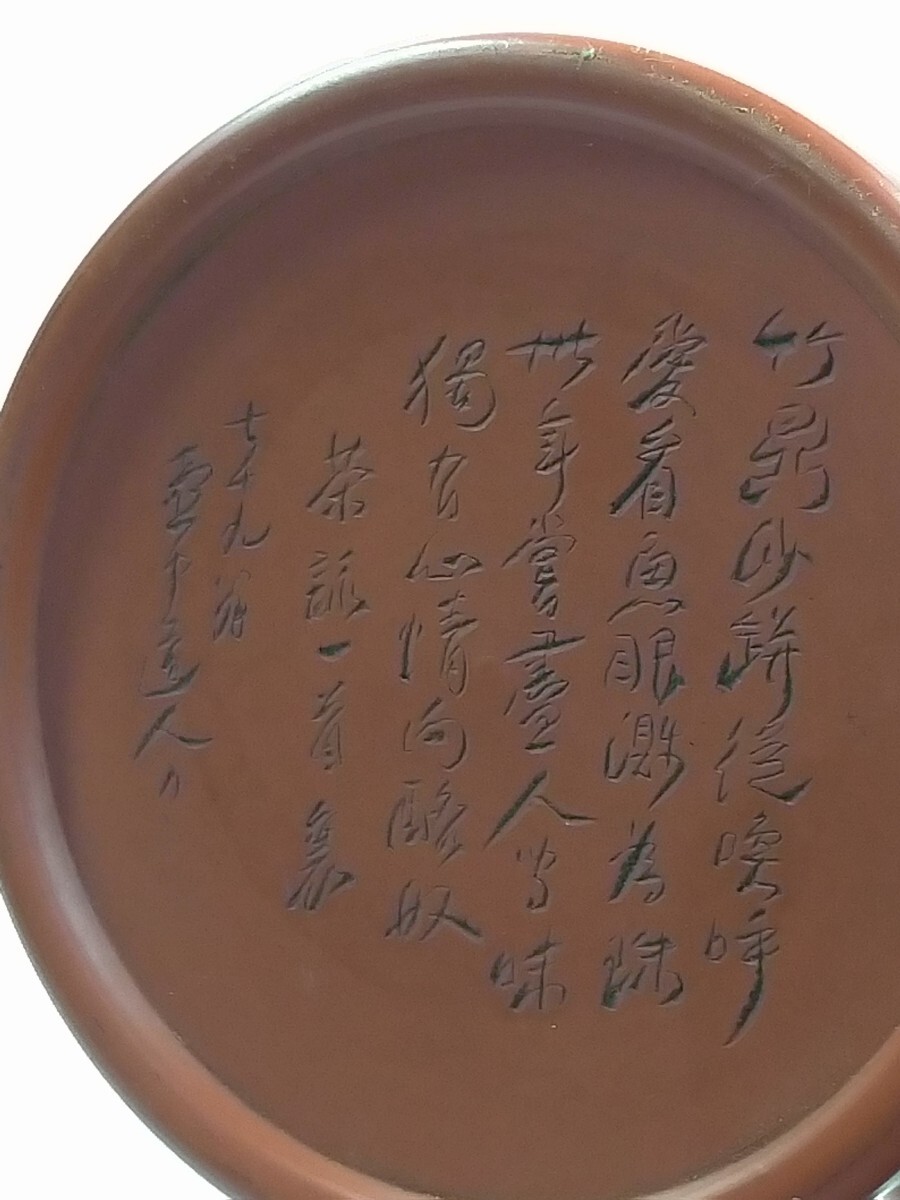 竹鼎砂缾從喚呼
愛看魚眼濺為珠
卅年嘗盡人間味
獨有心情向酪奴
茶詠一首 襄
七十九翁
壺中道人